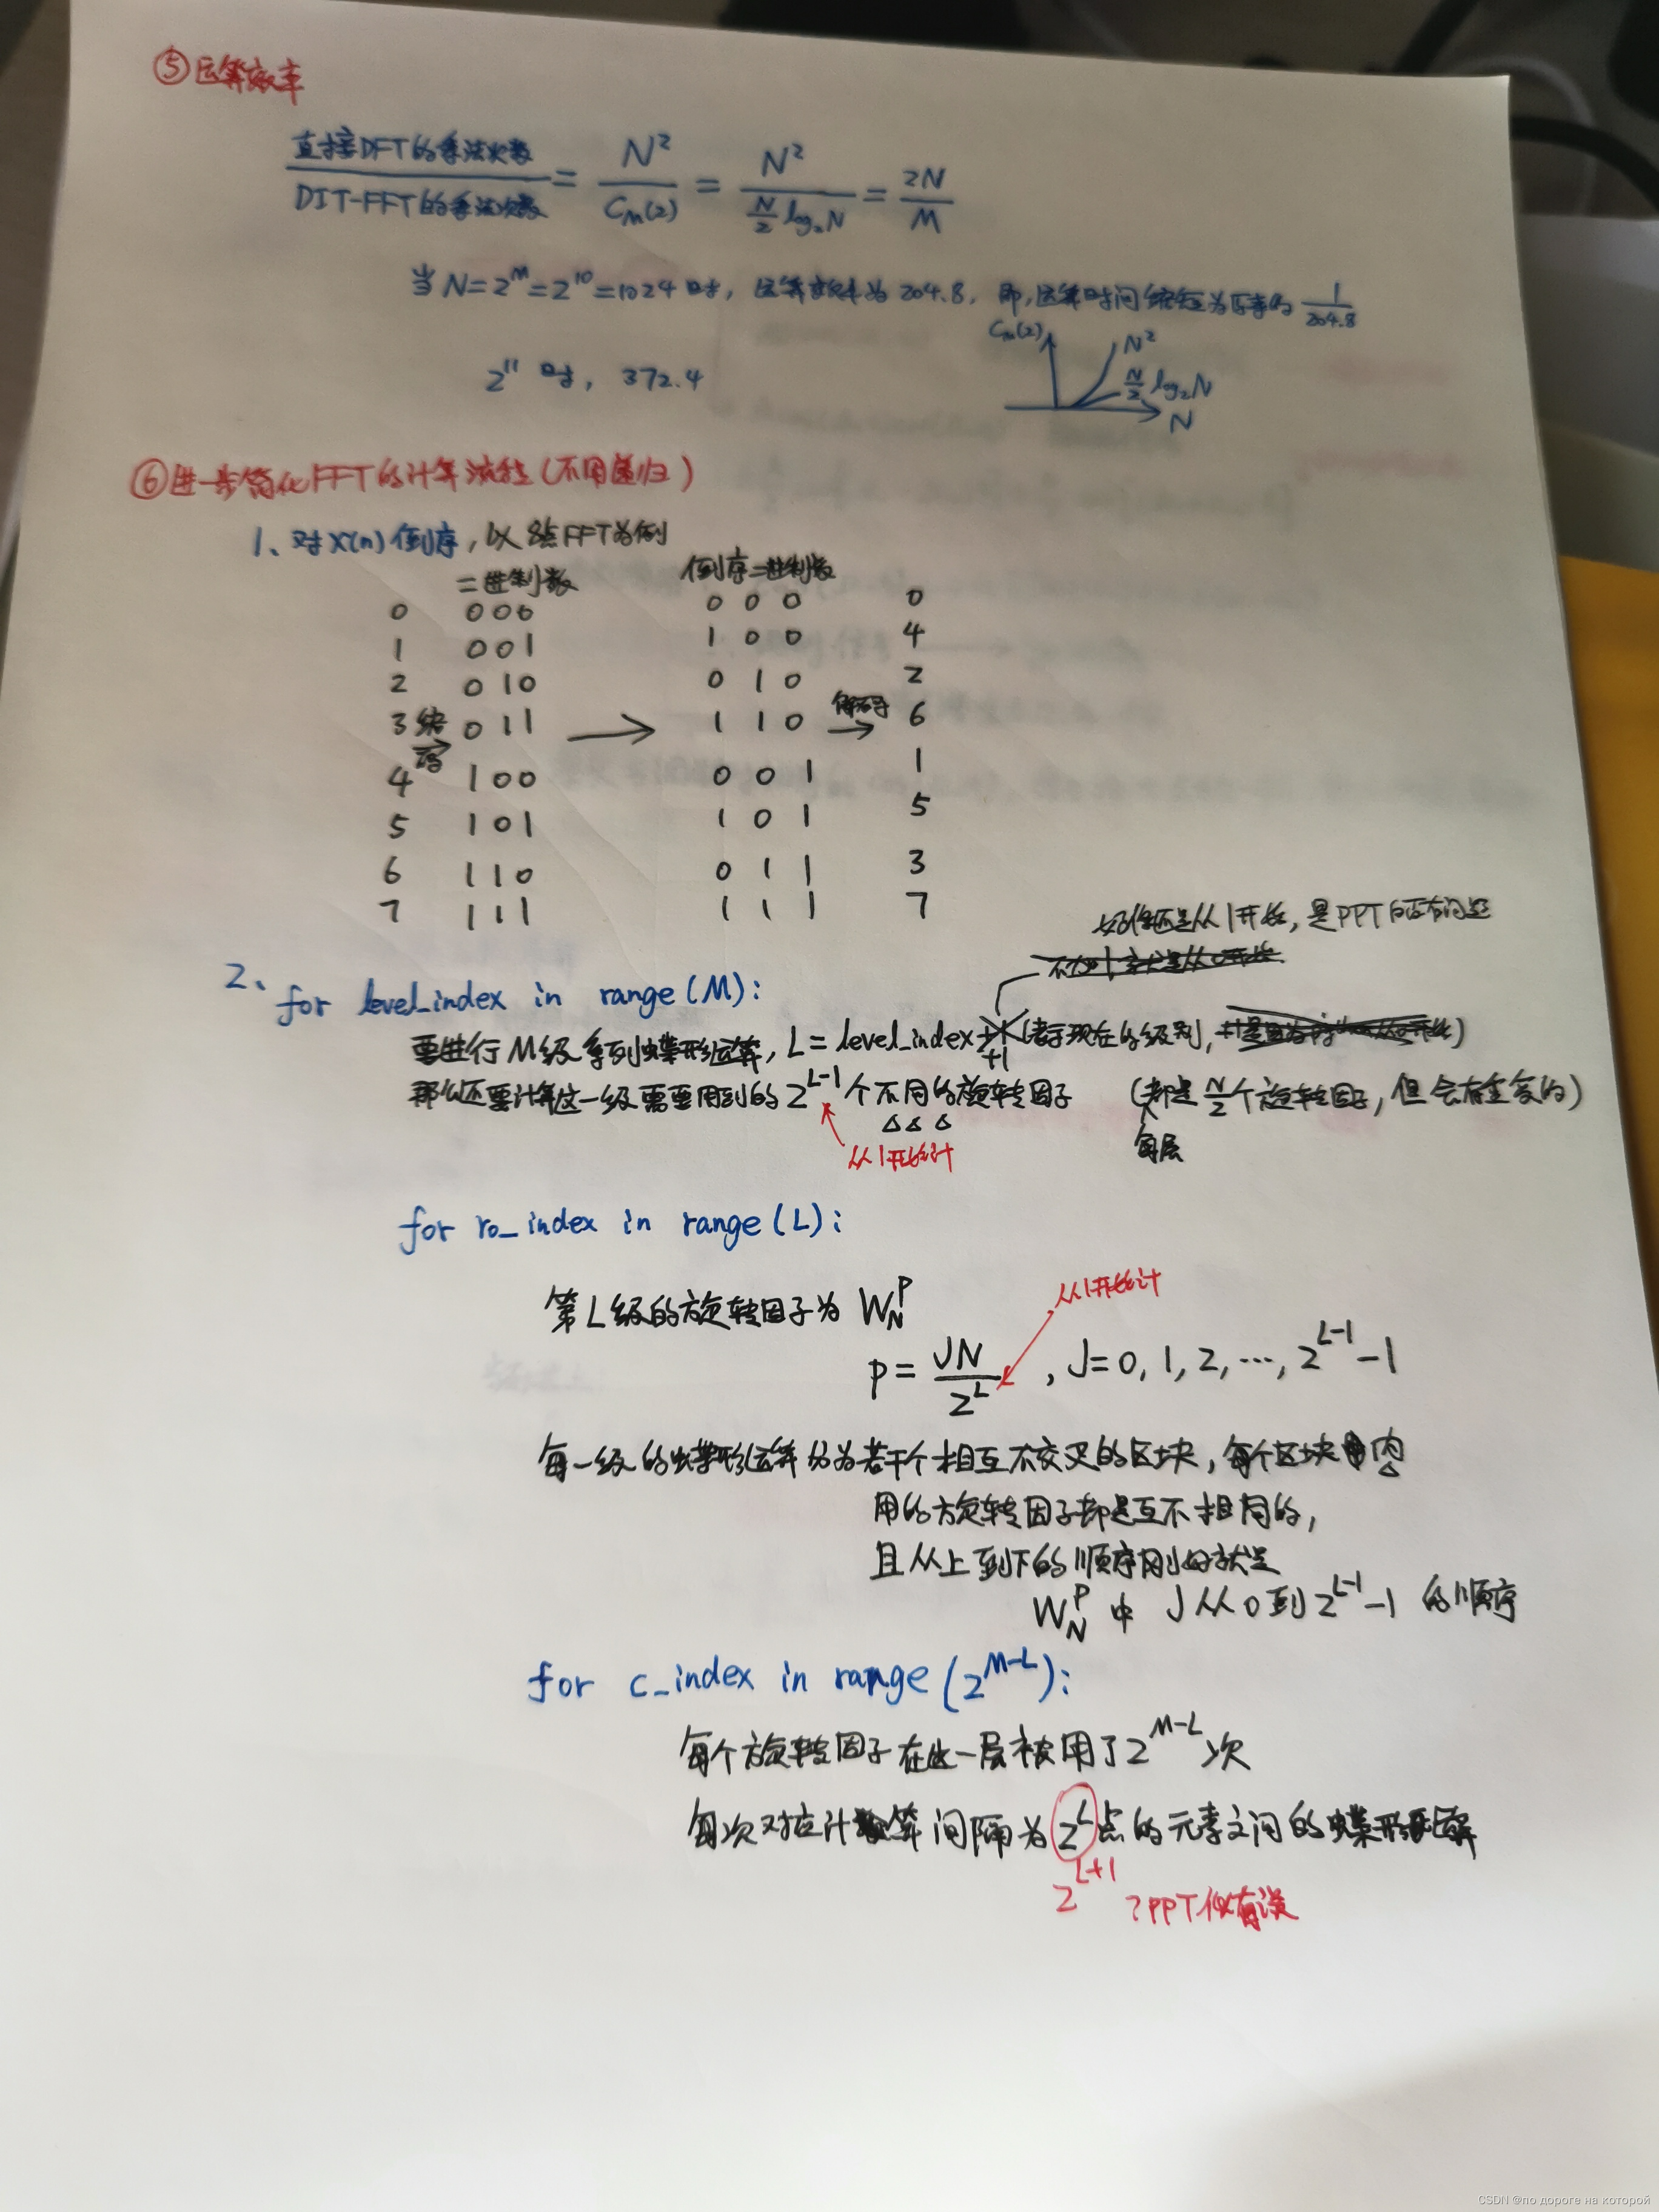 ⑤运算效率
直接DFT的乘法次数 / DIT-FFT的乘法次数 = N² / Cm(2) = N² / (N/2 log₂N) = 2N / M
当 N=2^M=2^10=1024 时，运算效率为 204.8，即，运算时间缩短为原来的 1/204.8
2^11 时，372.4
Cm(2)
N²
N/2 log₂N
N
⑥进一步简化FFT的计算流程(不用递归)
1、对X(n)倒序，以8点FFT为例
二进制数 倒序二进制数
0 000 0 0 0 0
1 001 1 0 0 4
2 010 0 1 0 2
3 编码→ 011 → 1 1 0 解码→ 6
4 100 0 0 1 1
5 101 1 0 1 5
6 110 0 1 1 3
7 111 1 1 1 7
好像还是从1开始，是PPT的有问题
2、for level_index in range(M):
要进行M级系列蝶形运算，L = level_index +1 (表示现在的级别，)
那么还要计算这一级需要用到的 2^(L-1) 个不同的旋转因子 (都是 N/2 个旋转因子，但会有重复的)
每层
从1开始计
for ro_index in range(L):
第L级的旋转因子为 W_N^P
从1开始计
P = JN / 2^L ，J=0, 1, 2, …, 2^(L-1) −1
每一级的蝶形运算分为若干个相互不交叉的区块，每个区块内
用的旋转因子都是互不相同的，
且从上到下的顺序刚好就是
W_N^P 中 J从0到 2^(L-1) −1 的顺序
for c_index in range(2^(M-L)):
每个旋转因子在这一层被用了 2^(M-L) 次
每次对应计算间隔为 2^L 点的元素之间的蝶形
2^(L+1) ?PPT似有误
CSDN @по дороге на которой